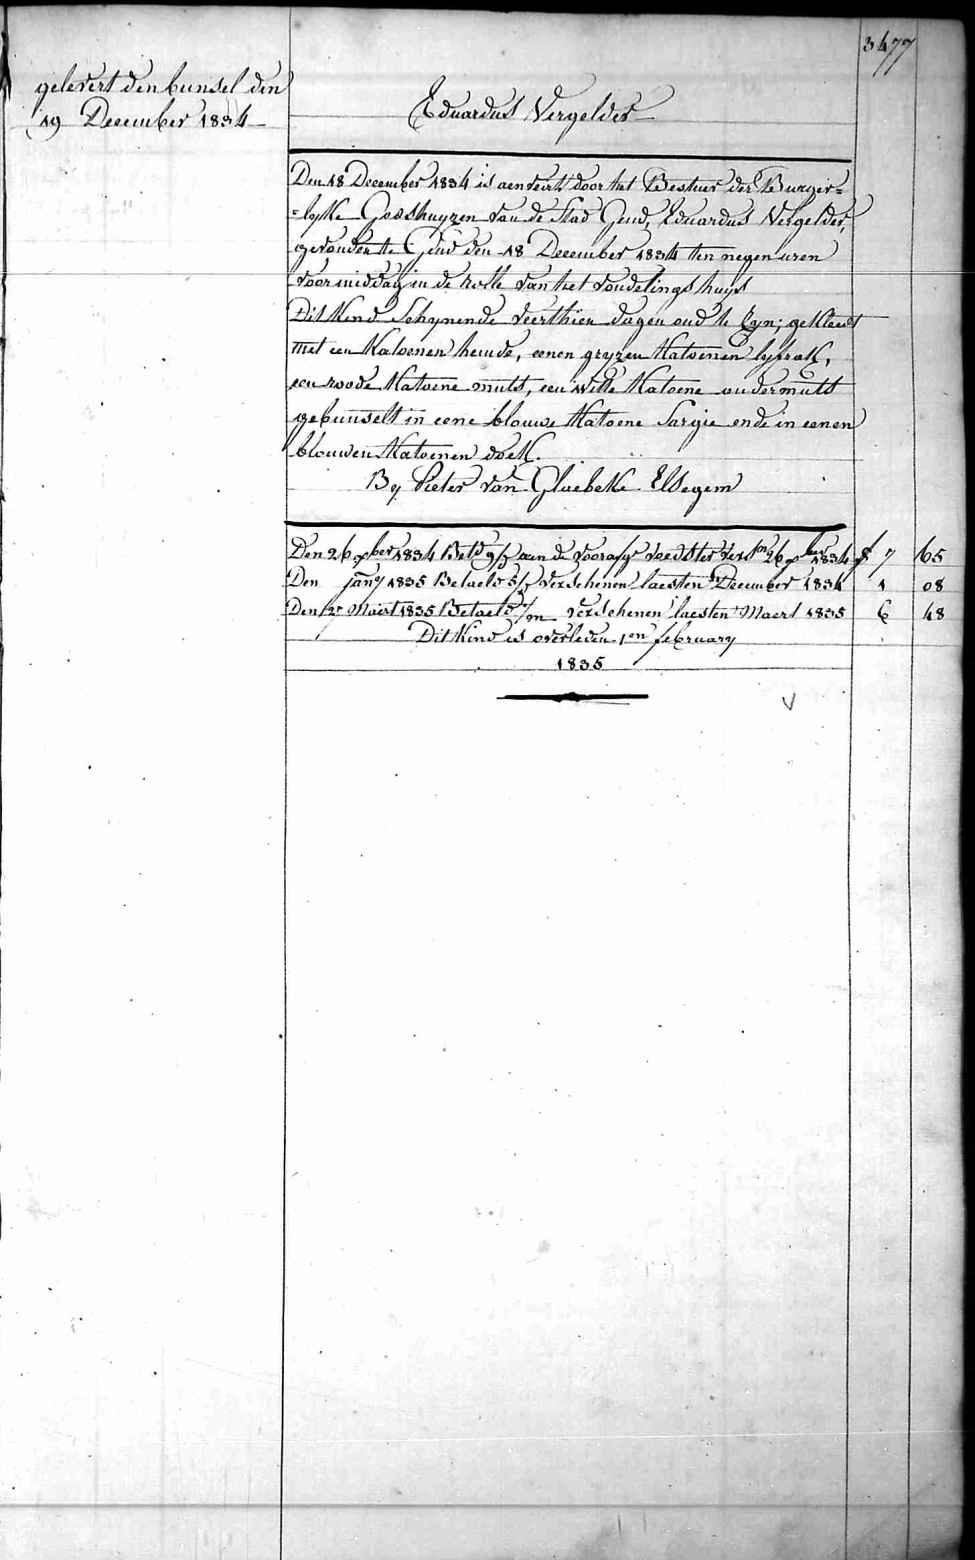 3477
gelevert den bunsel den
19 December 1834
Eduardus Vergelder
Den 18 December 1834 is aenveirt door het Bestuer der Burger=
=lyke Godshuyzen van de Stad Gend, Eduardus Vergelder,
gevonden te Gend den 18 December 1834 ten negen uren
voormiddag in de rolle van het vondelingshuys
Dit Kind Schynende veerthien dagen oud te Zyn; gekleed
met een Katoenen hemde, eenen gryzen Katoenen lyfrok,
een roode Katoene muts, een witte Katoene ondermuts
gebunselt in eene blauwe Katoene Sargie ende in eenen
blauwen Katoenen doek.
By Pieter van Gluebeke Elsegem
Den 26 xber 1834 Betd aen de voorafge 26 xber 1834 f 7 65
Den jany 1835 Betaeld verschenen laesten December 1834 1 08
Den Maert 1835 Betaeld verschenen laesten Maert 1835 6 48
Dit Kind is overleden 1en february
1835